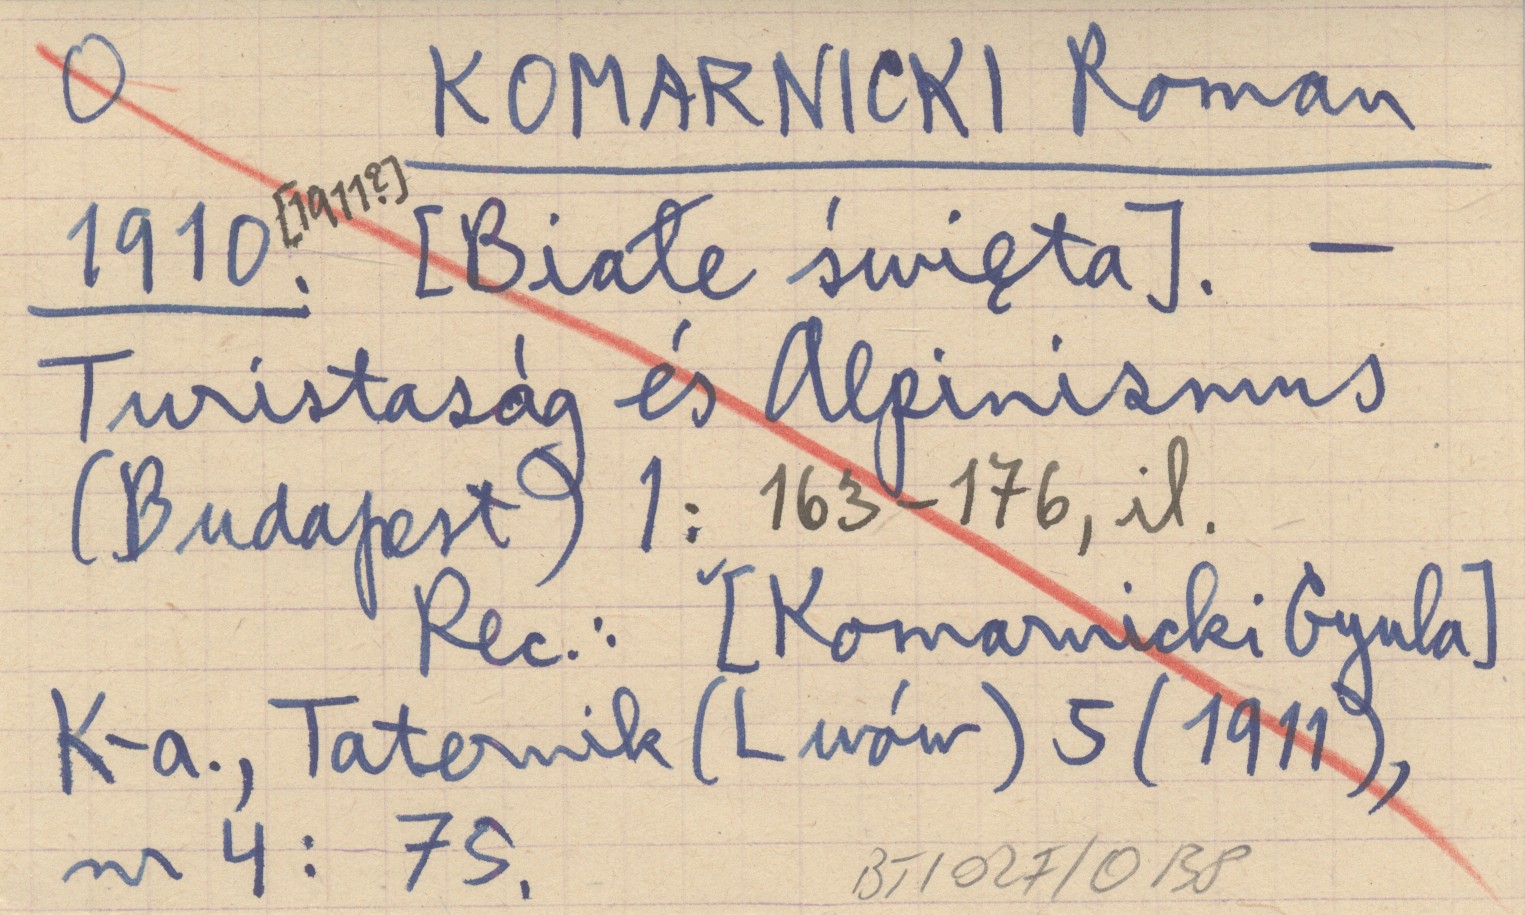 O KOMARNICKI Roman
1910. [1911?] [Białe święta]. —
Turistaság és Alpinizmus
(Budapest) 1: 163-176, il.
Rec.: [Komarnicki Gyula]
K-a., Taternik (Lwów) 5 (1911),
nr 4: 75.